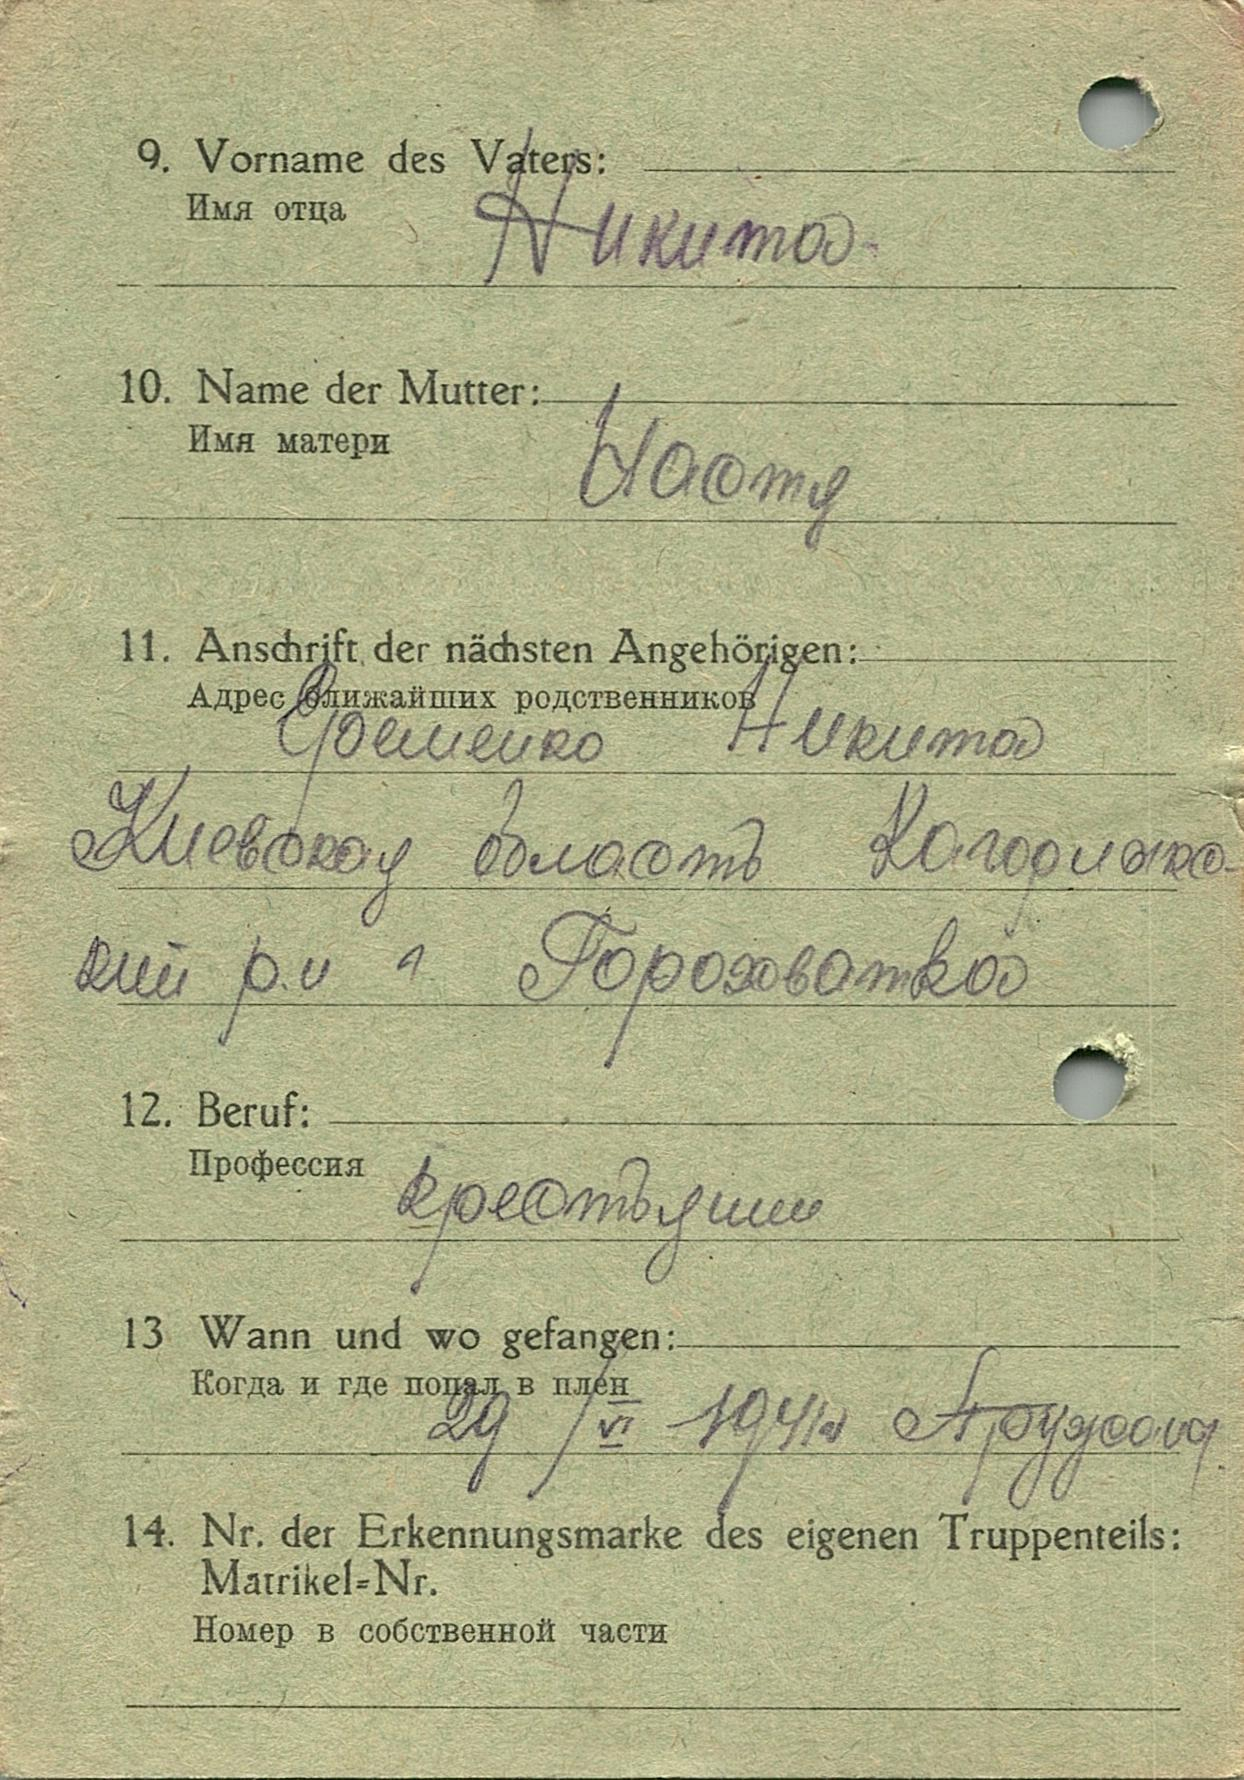 9. Vorname des Vaters:
Имя отца
Никита
10. Name der Mutter:
Имя матери
Настя
11. Anschrift der nächsten Angehörigen:
Адрес ближайших родственников
Еременко Никита
Киевская область Кагорлыкс-
кий р.н Гороховатка
12. Beruf:
Профессия
крестьянин
13 Wann und wo gefangen:
Когда и где попал в плен
29 / VI 1941
14. Nr. der Erkennungsmarke des eigenen Truppenteils:
Matrikel=Nr.
Номер в собственной части